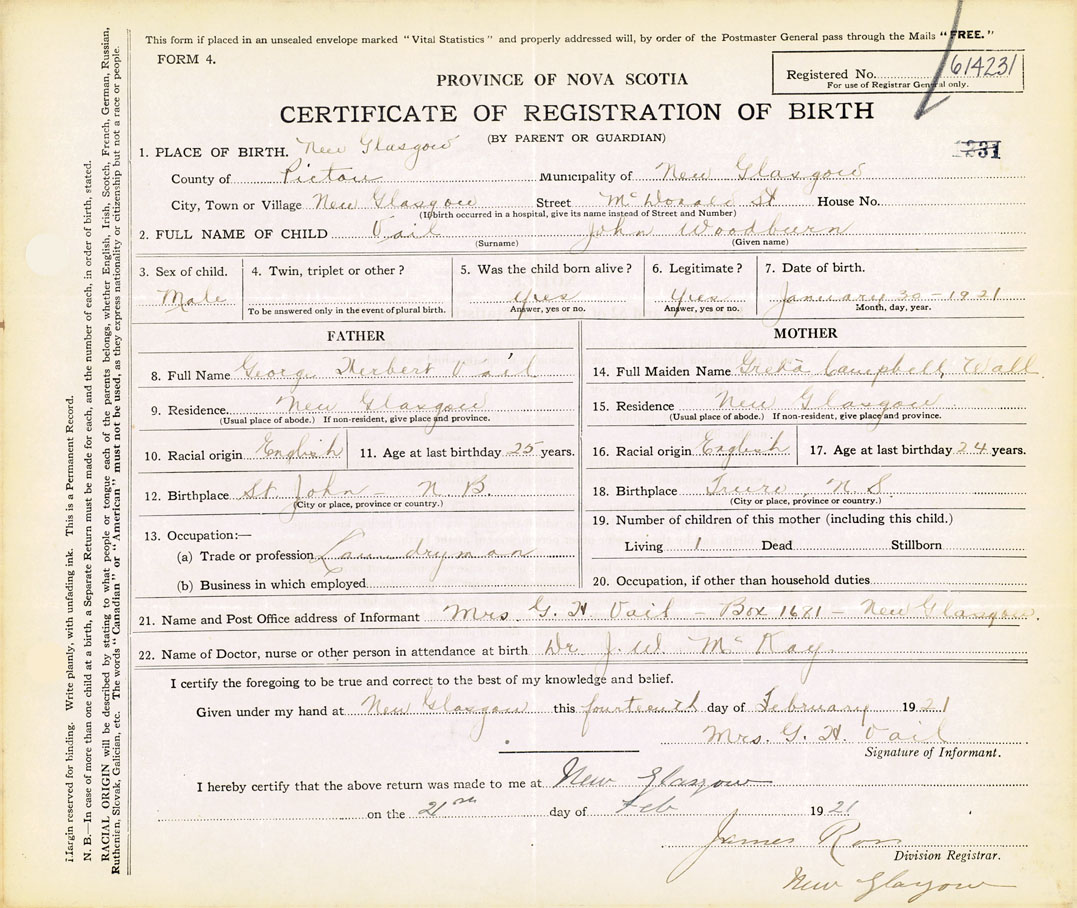 This form if placed in an unsealed envelope marked "Vital Statistics" and properly addressed will, by order of the Postmaster General pass through the Mails "FREE."
FORM 4.
Registered No. 614231
For use of Registrar General only.
PROVINCE OF NOVA SCOTIA
CERTIFICATE OF REGISTRATION OF BIRTH
(BY PARENT OR GUARDIAN)
1231
1. PLACE OF BIRTH. New Glasgow
County of Pictou Municipality of New Glasgow
City, Town or Village New Glasgow Street McDonald St House No.
(If birth occurred in a hospital, give its name instead of Street and Number)
2. FULL NAME OF CHILD Vail John Woodburn
(Surname) (Given name)
3. Sex of child. 4. Twin, triplet or other? 5. Was the child born alive? 6. Legitimate? 7. Date of birth.
Male Yes Yes January 30 - 1921
To be answered only in the event of plural birth. Answer, yes or no. Answer, yes or no. Month, day, year.
FATHER
8. Full Name George Herbert Vail
9. Residence. New Glasgow
(Usual place of abode.) If non-resident, give place and province.
10. Racial origin English 11. Age at last birthday 25 years.
12. Birthplace St. John - N. B.
(City or place, province or country.)
13. Occupation:—
(a) Trade or profession Laundryman
(b) Business in which employed
MOTHER
14. Full Maiden Name Greta Campbell Wall
15. Residence New Glasgow
(Usual place of abode.) If non-resident, give place and province.
16. Racial origin English 17. Age at last birthday 24 years.
18. Birthplace Truro, N. S
(City or place, province or country.)
19. Number of children of this mother (including this child.)
Living 1 Dead Stillborn
20. Occupation, if other than household duties
21. Name and Post Office address of Informant Mrs. G. H. Vail - Box 1681 - New Glasgow.
22. Name of Doctor, nurse or other person in attendance at birth Dr. J. W. McKay.
I certify the foregoing to be true and correct to the best of my knowledge and belief.
Given under my hand at New Glasgow this fourteenth day of February 1921
Mrs. G. H. Vail
Signature of Informant.
I hereby certify that the above return was made to me at New Glasgow
on the 21st day of Feb 1921
James Ross
Division Registrar.
New Glasgow
Margin reserved for binding. Write plainly, with unfading ink. This is a Permanent Record.
N. B.—In case of more than one child at a birth, a Separate Return must be made for each, and the number of each, in order of birth, stated.
RACIAL ORIGIN will be described by stating to what people or tongue each of the parents belongs, whether English, Irish, Scotch, French, German, Russian,
Ruthenian, Slovak, Galician, etc. The words "Canadian" or "American" must not be used, as they express nationality or citizenship but not a race or people.